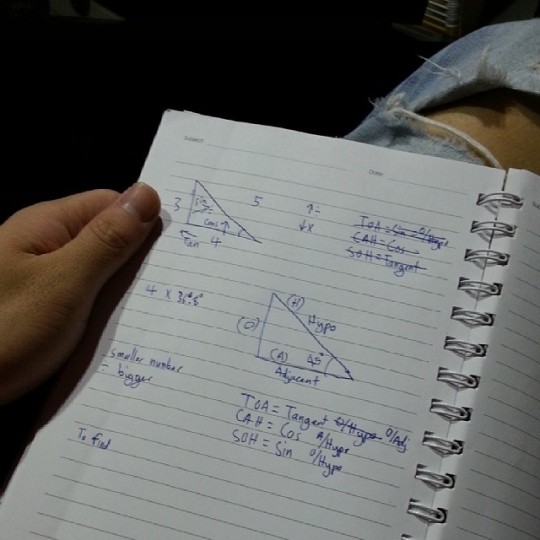 Subject:
Date:
3
Sin
5
Cos
Tan
4
TOA = Sin O/Hype
CAH = Cos
SOH = Tangent
(H)
Hypo
(O)
(A)
45°
Adjacent
smaller number
= bigger
TOA = Tangent O/Hypo O/Adj
CAH = Cos A/Hypo
SOH = Sin O/Hypo
To find